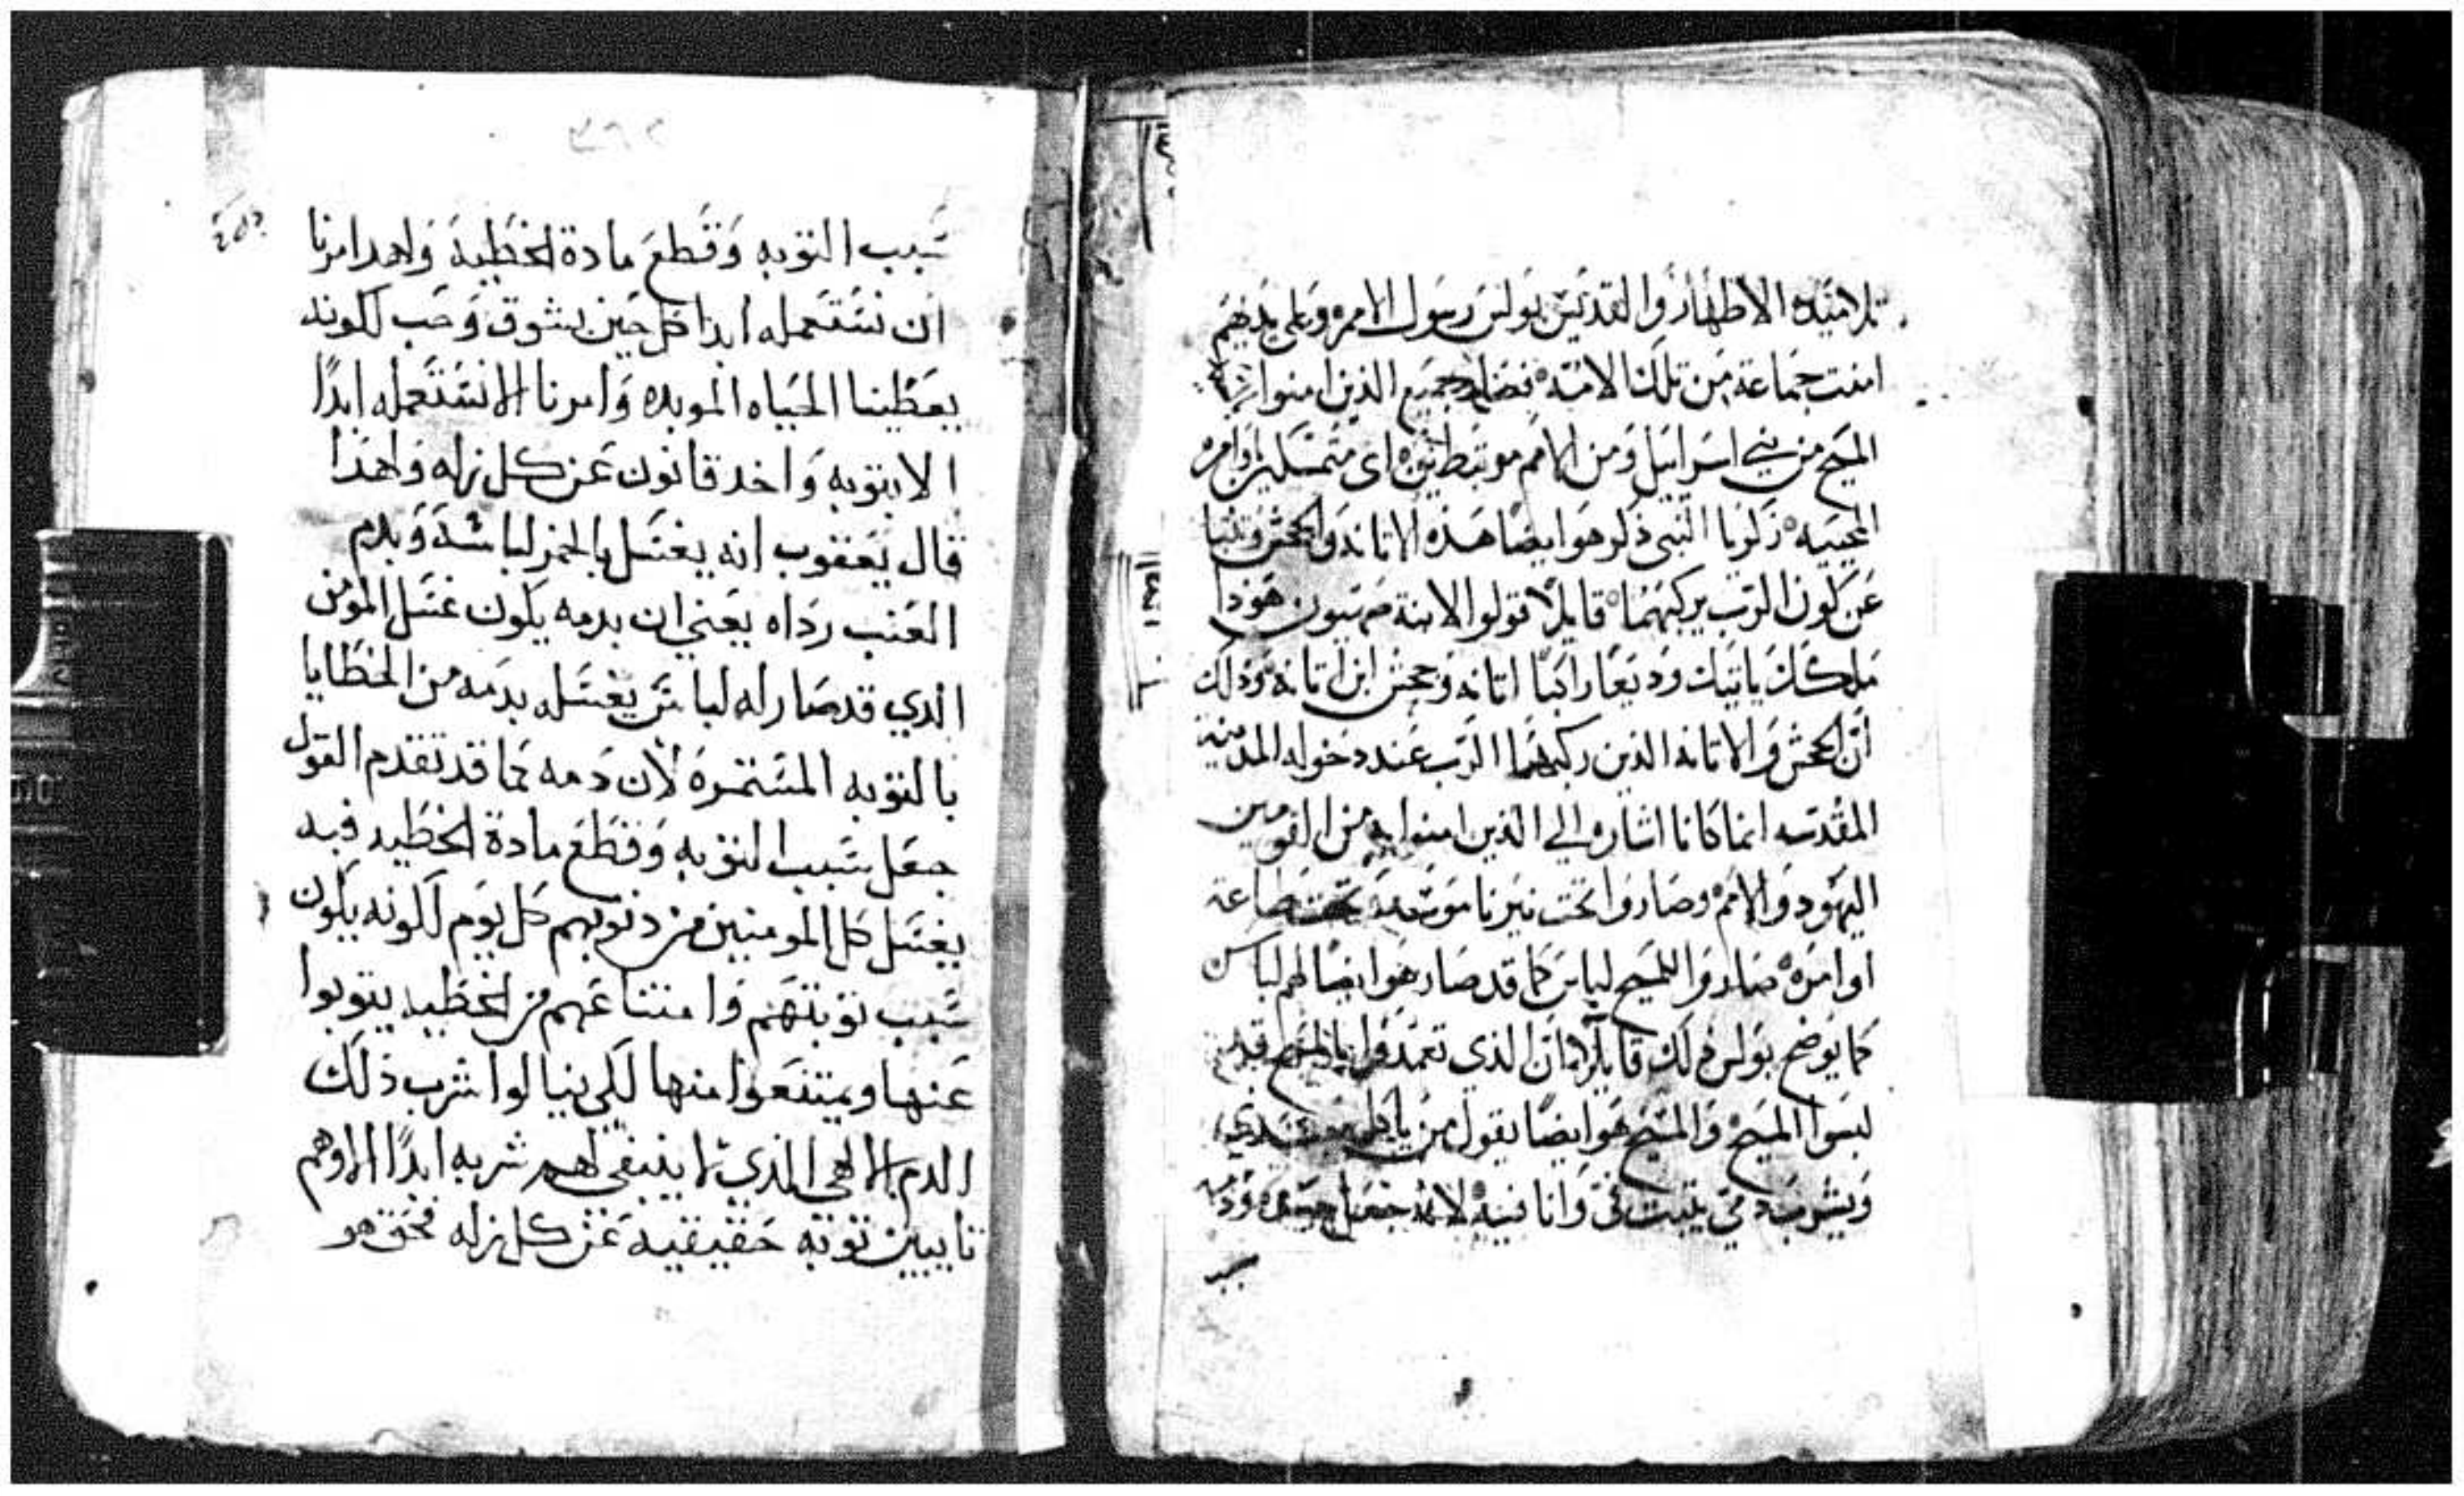 تلاميذه الاطهار والقديس بولس رسول الامم وعلى يديهم
امنت جماعة من تلك الامة فصار جميع الذين امنوا
المسيح من بني اسرائيل ومن الامم مرتبطين اي متمسكين باوامره
المحييه زكريا النبي ذكر هو ايضا هذه الاتانه والجحش وتنبا
عن كون الرب يركبهما قايلا قولوا لابنة صهيون هوذا
ملكك ياتيك وديعا راكبا اتانه وجحش ابن اتانه وذلك
ان الجحش والاتانه الذين ركبهما الرب عند دخوله المدينة
المقدسه انما كانا اشاره الي الذين امنوا به من القومين
اليهود والامم وصاروا تحت نير ناموسه تحت طاعة
اوامره صاروا للمسيح لباس كما قد صار هو ايضا لهم لباس
كما يوضح بولس ذلك قايلا ان الذي تعمدوا بالمسيح قد
لبسوا المسيح والمسيح هو ايضا يقول من ياكل جسدي
ويشرب دمي يثبت في وانا فيه لانه جعل جسده ودمه
سبب
٣٦٢
سبب التوبه وقطع مادة الخطيه ولهدا امرنا
ان نستعمله ابدا كل حين بشوق وحب لكونه
يعطينا الحياه الموبده وامرنا الا نستعمله ابدًا
الا بتوبه واخد قانون عن كل زله ولهذا
قال يعقوب انه يغسل بالخمر لباسه وبدم
العنب رداه يعني ان بدمه يكون غسل المومن
الدي قد صار له لباس يغسله بدمه من الخطايا
بالتوبه المستمره لان دمه كما قد تقدم القول
جعل سبب التوبه وقطع مادة الخطيه فبه
يغسل كل المومنين من دنوبهم كل يوم لكونه يكون
سبب توبتهم وامتناعهم من الخطيه يتوبوا
عنها ويمتنعوا منها لكي ينالوا شرب ذلك
الدم الالهي الذي لا ينبغي لهم شربه ابدًا الا وهم
تايبين توبه حقيقيه عن كل زله فحق هو